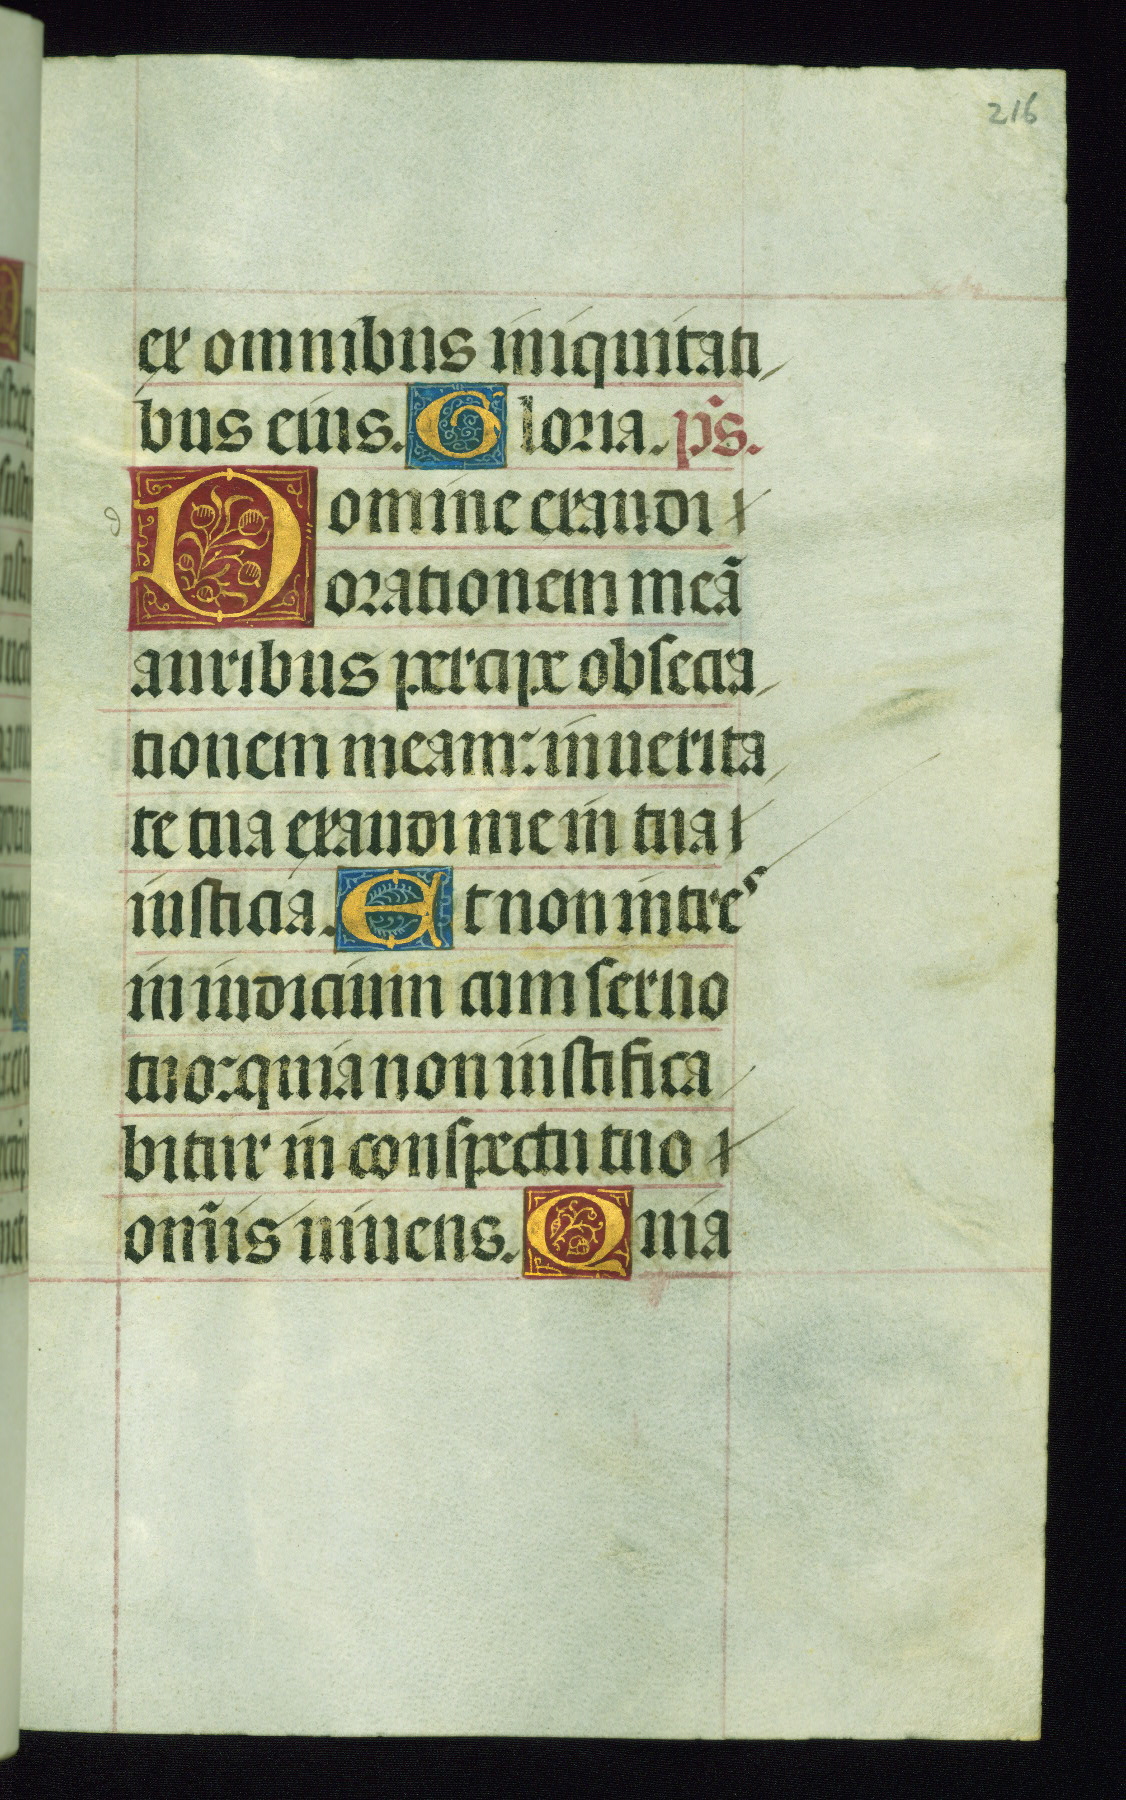 216
ex omnibus iniquitati
bus eius. Gloria. ps̄.
Domine exaudi
orationem meā
auribus percipe obsecra
tionem meam: in uerita
te tua exaudi me in tua
iusticia. Et non intres
in iudicium cum seruo
tuo: quia non iustifica
bitur in conspectu tuo
om̄is uiuens. Quia